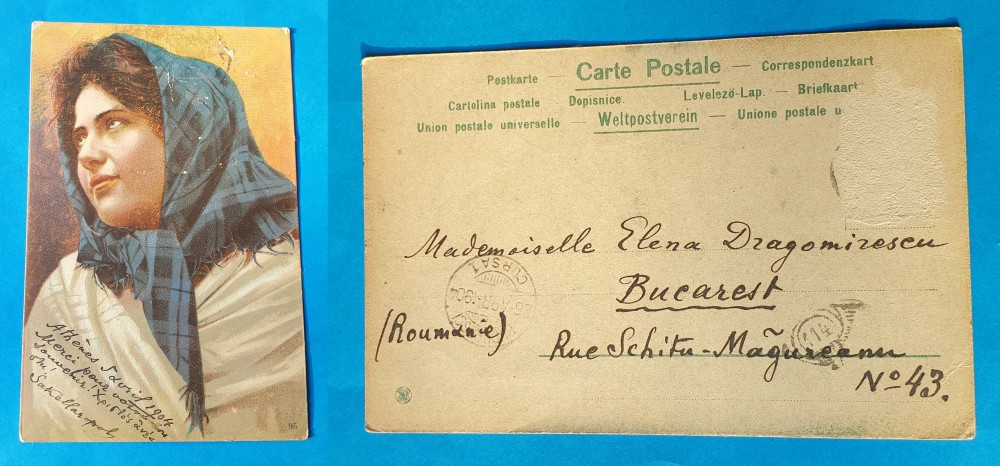 Athènes 5 avril 1904
Merci pour votre
souvenir! Χριστὸς ἀνέ
Sakellaropol
95
Postkarte — Carte Postale — Correspondenzkart
Cartolina postale Dopisnice. Levelező-Lap. — Briefkaart
Union postale universelle — Weltpostverein — Unione postale u
Mademoiselle Elena Dragomirescu
CURSA 1
APR 1904
Bucarest
(Roumanie)
114
Rue Schitu-Măgureanu
No 43.